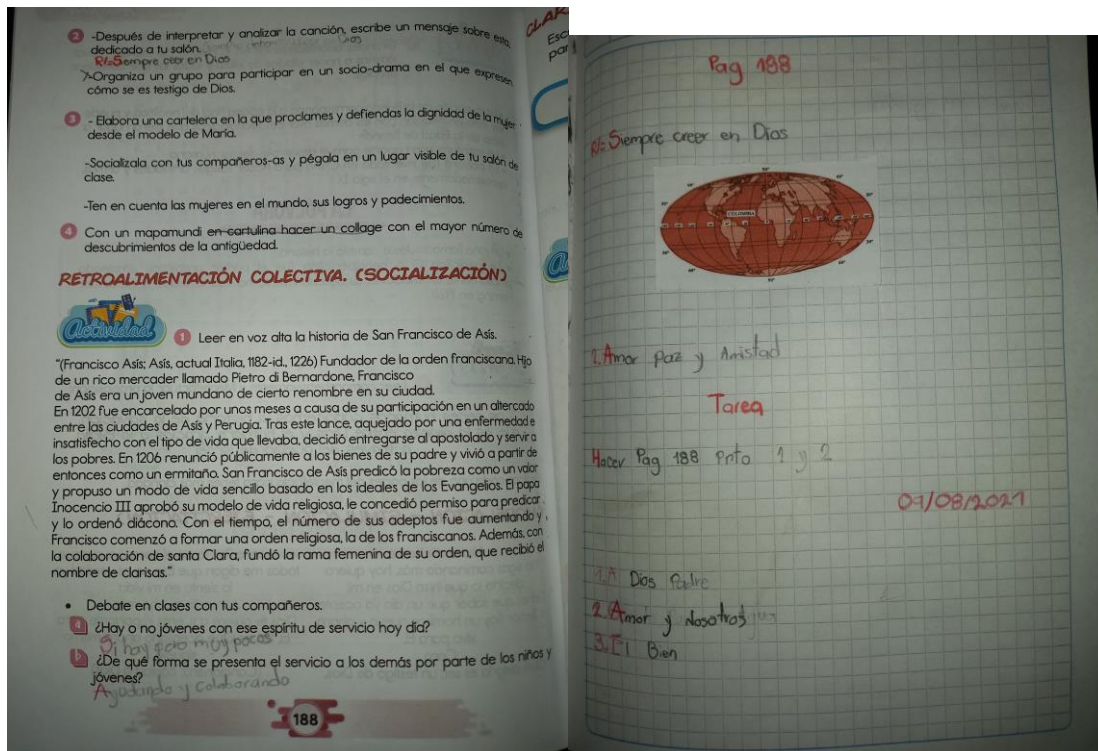 2 -Después de interpretar y analizar la canción, escribe un mensaje sobre esta,
dedicado a tu salón. Dios
R/=Siempre creer en Dios
-Organiza un grupo para participar en un socio-drama en el que expresen
cómo se es testigo de Dios.
3 - Elabora una cartelera en la que proclames y defiendas la dignidad de la mujer
desde el modelo de María.
-Socializala con tus compañeros-as y pégala en un lugar visible de tu salón de
clase.
-Ten en cuenta las mujeres en el mundo, sus logros y padecimientos.
4 Con un mapamundi en cartulina hacer un collage con el mayor número de
descubrimientos de la antigüedad.
RETROALIMENTACIÓN COLECTIVA. (SOCIALIZACIÓN)
Actividad
1 Leer en voz alta la historia de San Francisco de Asís.
"(Francisco Asís; Asís, actual Italia, 1182-id., 1226) Fundador de la orden franciscana. Hijo
de un rico mercader llamado Pietro di Bernardone, Francisco
de Asís era un joven mundano de cierto renombre en su ciudad.
En 1202 fue encarcelado por unos meses a causa de su participación en un altercado
entre las ciudades de Asís y Perugia. Tras este lance, aquejado por una enfermedad e
insatisfecho con el tipo de vida que llevaba, decidió entregarse al apostolado y servir a
los pobres. En 1206 renunció públicamente a los bienes de su padre y vivió a partir de
entonces como un ermitaño. San Francisco de Asís predicó la pobreza como un valor
y propuso un modo de vida sencillo basado en los ideales de los Evangelios. El papa
Inocencio III aprobó su modelo de vida religiosa, le concedió permiso para predicar
y lo ordenó diácono. Con el tiempo, el número de sus adeptos fue aumentando y
Francisco comenzó a formar una orden religiosa, la de los franciscanos. Además, con
la colaboración de santa Clara, fundó la rama femenina de su orden, que recibió el
nombre de clarisas."
• Debate en clases con tus compañeros.
a ¿Hay o no jóvenes con ese espíritu de servicio hoy día?
Si hay pero muy pocos
b ¿De qué forma se presenta el servicio a los demás por parte de los niños y
jóvenes?
Ayudando y colaborando
188
CLAR
Esc
par
Pag 188
R/=Siempre creer en Dios
COLOMBIA
2. Amor Paz y Amistad
Tarea
Hacer Pag 188 Pnto 1 y 2
09/08/2021
1. A Dios Padre
2. Amor y Nosotros
3. El Bien